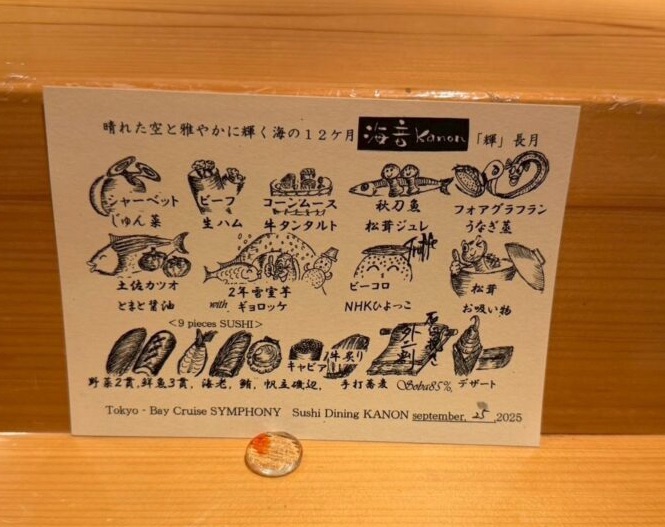 晴れた空と雅やかに輝く海の12ケ月 海音 Kanon 「輝」長月
シャーベット ビーフ コーンムース 秋刀魚 フォアグラフラン
じゅん菜 生ハム 牛タンタルト 松茸ジュレ うなぎ蒸
Truffe
土佐カツオ 2年雪室芋 ビーコロ 松茸
とまと醤油 with ギョロッケ NHKひよっこ お吸い物
<9 pieces SUSHI>
キャビア 牛炙り
野菜2貫,鮮魚3貫, 海老, 鮪, 帆立磯辺, 手打蕎麦 Soba85%, デザート
Tokyo - Bay Cruise SYMPHONY Sushi Dining KANON september, 25 ,2025